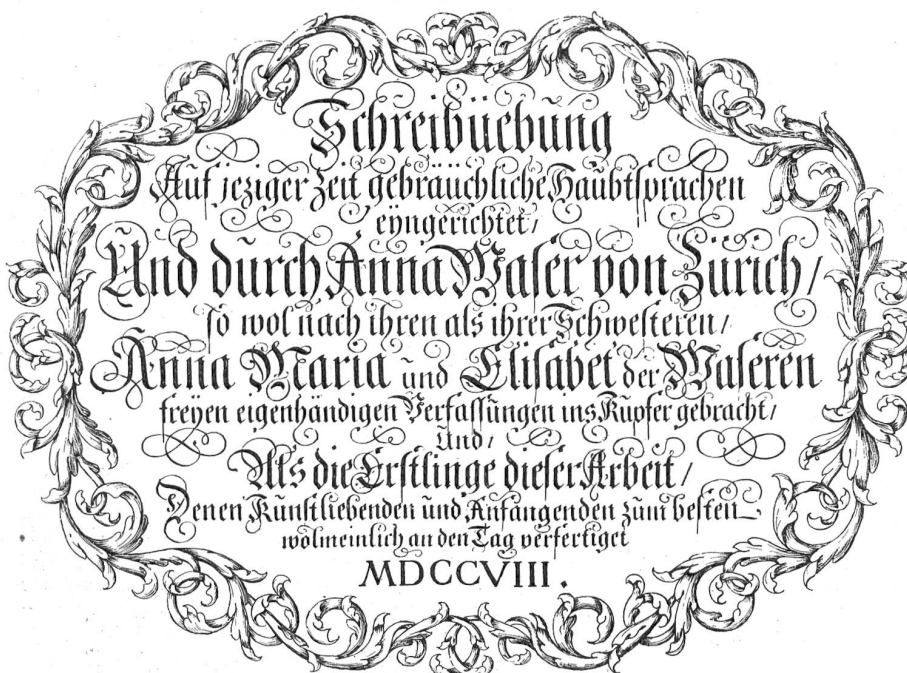 Schreibüebung
Auf jeziger Zeit gebräuchliche Haubtsprachen
eyngerichtet/
Und dürch Anna Waser von Zürich/
so wol nach ihren als ihrer Schwesteren/
Anna Maria und Elisabet der Waseren
freyen eigenhändigen Verfassüngen ins Kupfer gebracht/
Und/
Als die Erstlinge dieser Arbeit/
Denen Künstliebenden und Anfangenden züm besten
wolmeinlich an den Tag verfertiget
MDCCVIII.